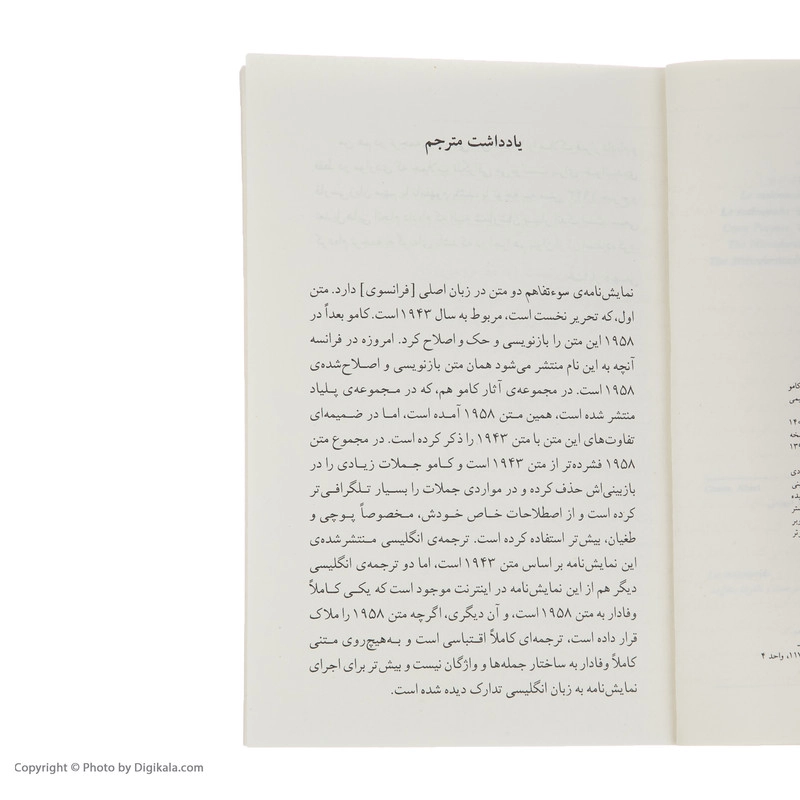 یادداشت مترجم
نمایش‌نامه‌ی سوءتفاهم دو متن در زبان اصلی [فرانسوی] دارد. متن
اول، که تحریر نخست است، مربوط به سال ۱۹۴۳ است. کامو بعداً در
۱۹۵۸ این متن را بازنویسی و حک و اصلاح کرد. امروزه در فرانسه
آنچه به این نام منتشر می‌شود همان متن بازنویسی و اصلاح‌شده‌ی
۱۹۵۸ است. در مجموعه‌ی آثار کامو هم، که در مجموعه‌ی پلیاد
منتشر شده است، همین متن ۱۹۵۸ آمده است، اما در ضمیمه‌ای
تفاوت‌های این متن با متن ۱۹۴۳ را ذکر کرده است. در مجموع متن
۱۹۵۸ فشرده‌تر از متن ۱۹۴۳ است و کامو جملات زیادی را در
بازبینی‌اش حذف کرده و در مواردی جملات را بسیار تلگرافی‌تر
کرده است و از اصطلاحات خاص خودش، مخصوصاً پوچی و
طغیان، بیش‌تر استفاده کرده است. ترجمه‌ی انگلیسی منتشرشده‌ی
این نمایش‌نامه بر اساس متن ۱۹۴۳ است، اما دو ترجمه‌ی انگلیسی
دیگر هم از این نمایش‌نامه در اینترنت موجود است که یکی کاملاً
وفادار به متن ۱۹۵۸ است، و آن دیگری، اگرچه متن ۱۹۵۸ را ملاک
قرار داده است، ترجمه‌ای کاملاً اقتباسی است و به‌هیچ‌روی متنی
کاملاً وفادار به ساختار جمله‌ها و واژگان نیست و بیش‌تر برای اجرای
نمایش‌نامه به زبان انگلیسی تدارک دیده شده است.
کامو
واحد ۴
Copyright © Photo by Digikala.com